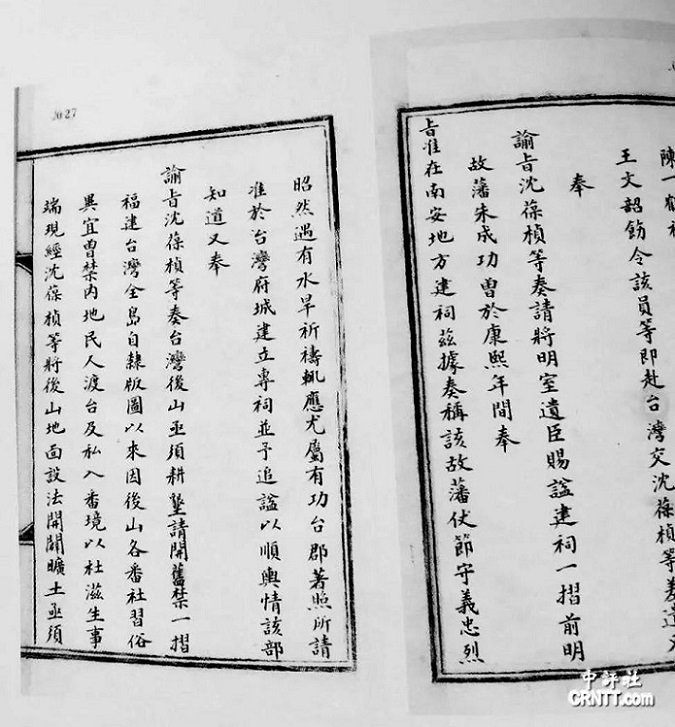 陳一鶴
王文韶飭令該員等即赴台灣交沈葆楨等差遣
奉
諭旨沈葆楨等奏請將明室遺臣賜諡建祠一摺前明
故藩朱成功曾於康熙年間奉
旨准在南安地方建祠茲據奏稱該故藩伏節守義忠烈
昭然遇有水旱祈禱輒應尤屬有功台郡著照所請
准於台灣府城建立專祠並予追諡以順輿情該部
知道又奉
諭旨沈葆楨等奏台灣後山亟須耕墾請開舊禁一摺
福建台灣全島自隸版圖以來因後山各番社習俗
異宜曾禁內地民人渡台及私入番境以杜滋生事
端現經沈葆楨等將後山地面設法開闢曠土亟須
2027
中評社
CRNTT.com